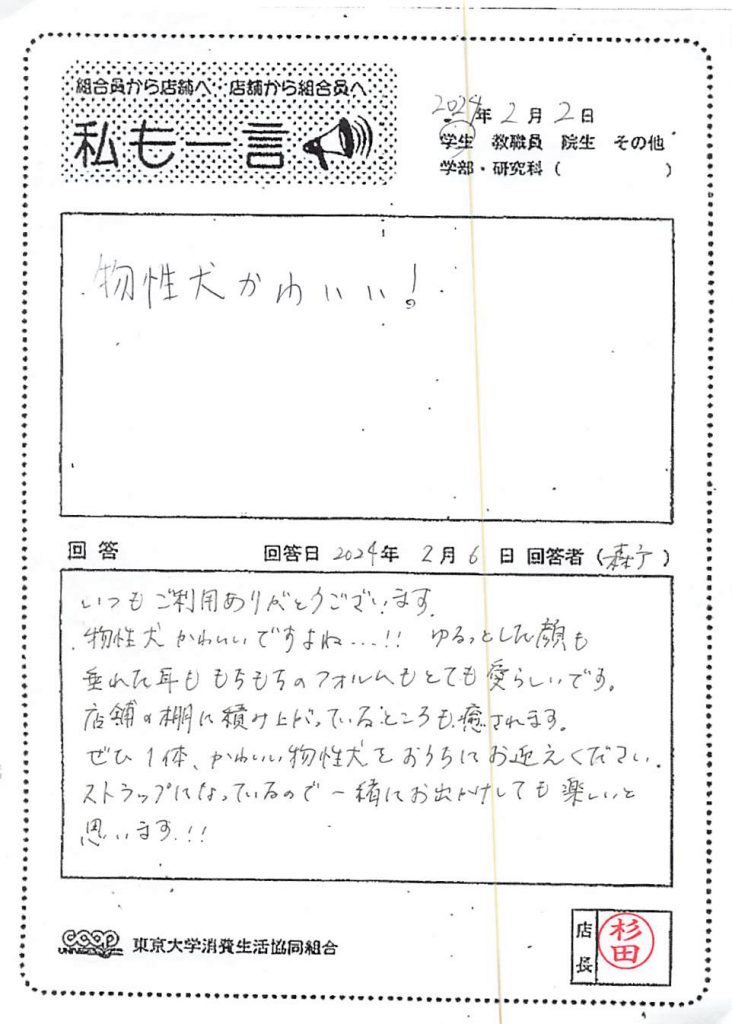 組合員から店舗へ・店舗から組合員へ
私も一言
2024年2月2日
学生 教職員 院生 その他
学部・研究科（ ）
物性犬かわいい！
回答 回答日 2024年 2月 6日 回答者（ ）
いつもご利用ありがとうございます.
物性犬かわいいですよね...!! ゆるっとした顔も
垂れた耳も もちもちのフォルムもとても愛らしいです。
店舗の棚に積み上がっているところも癒されます。
ぜひ1体、かわいい物性犬をおうちにお迎えください.
ストラップになっているので一緒にお出かけしても楽しいと
思います.!!
coop
UNIV.
東京大学消費生活協同組合
店長
杉田